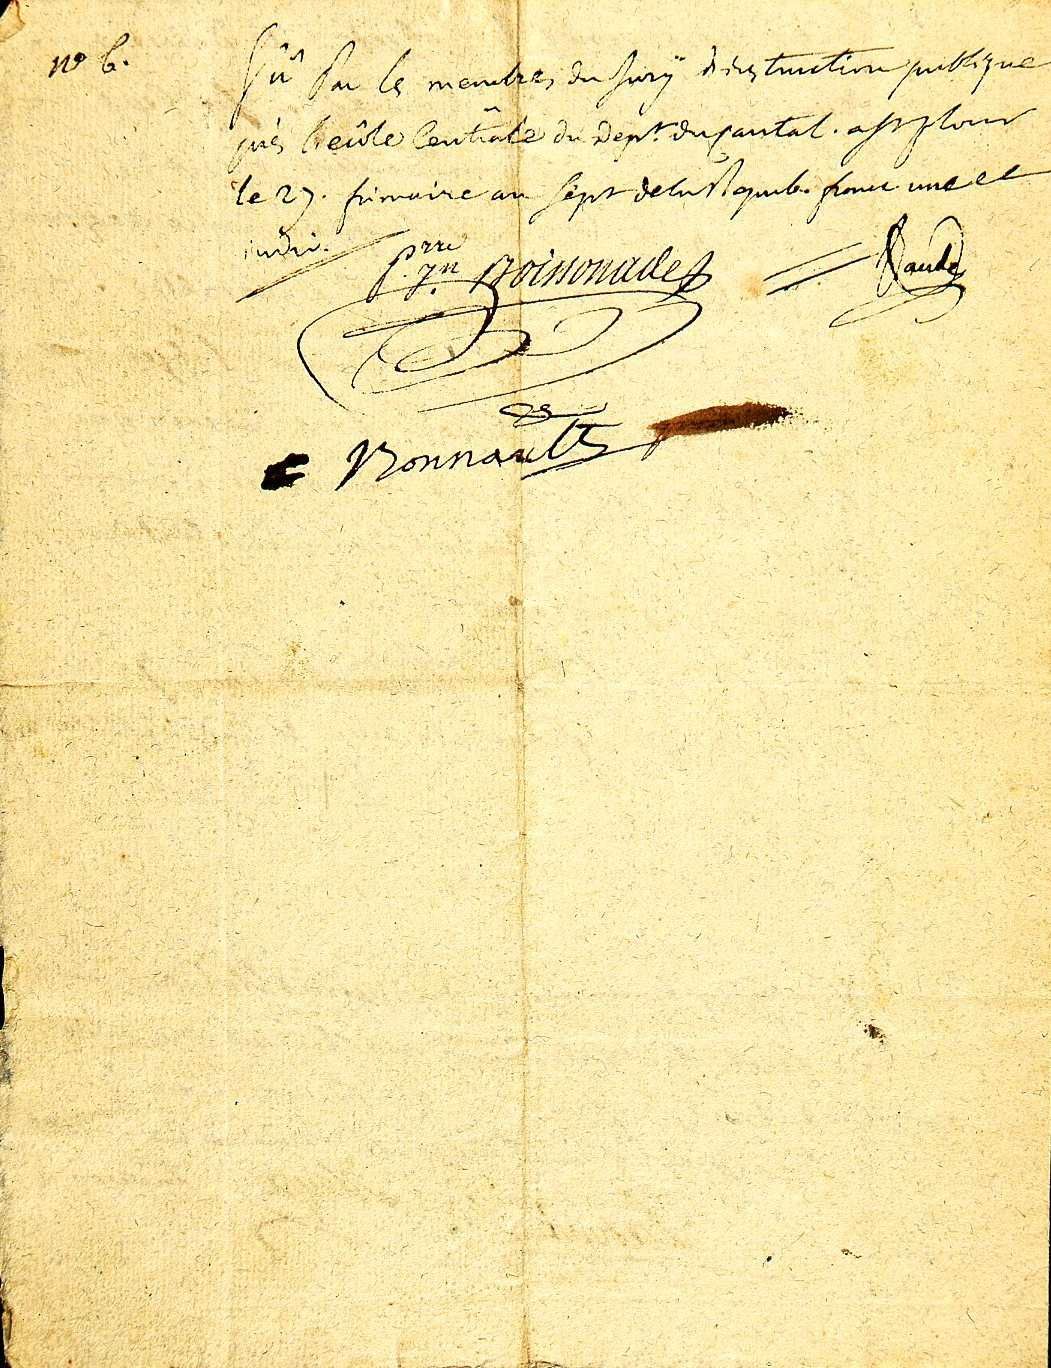 n° 6.
Vû par les membres du Jury d'instruction publique
près l'ecôle Centrale du Dept. du Cantal. a St flour
le 27. frimaire an sept de la Repub. franc. une et
indivi.
Prre Jn Boissonade
Daude
Bonnault